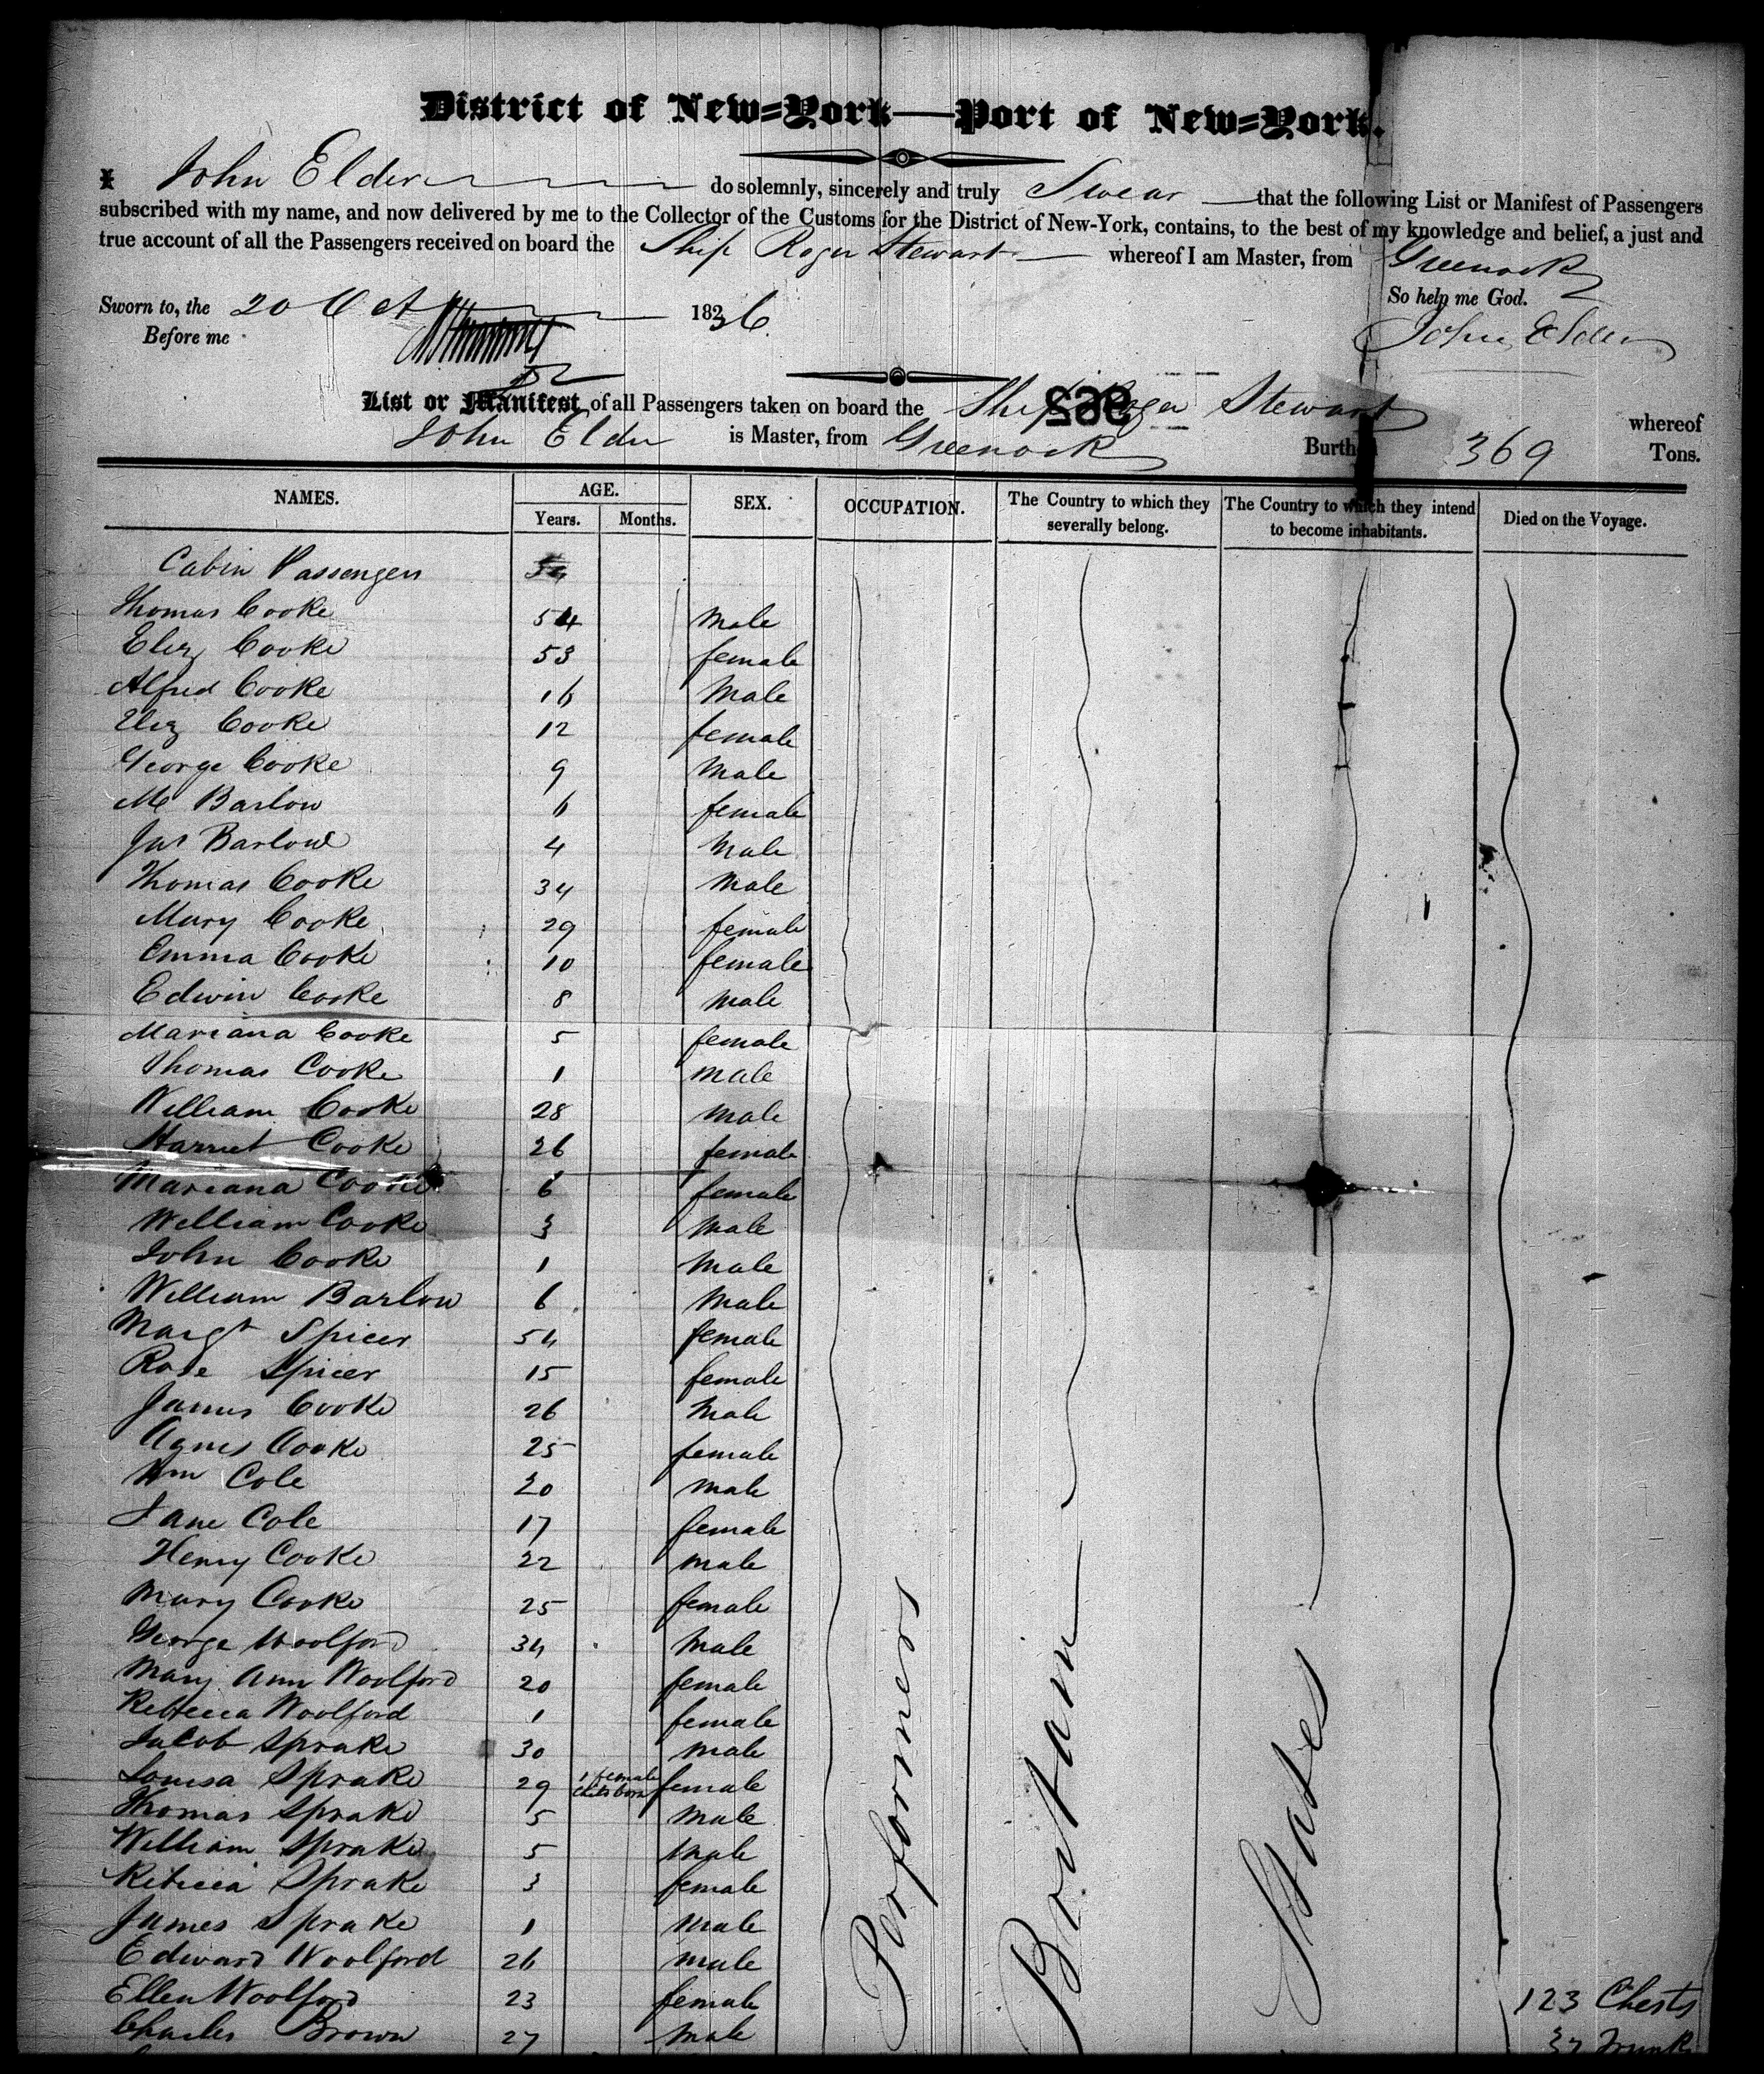 District of New=York—Port of New=York.
I John Elder do solemnly, sincerely and truly Swear that the following List or Manifest of Passengers
subscribed with my name, and now delivered by me to the Collector of the Customs for the District of New-York, contains, to the best of my knowledge and belief, a just and
true account of all the Passengers received on board the Ship Roger Stewart whereof I am Master, from Greenock
Sworn to, the 20 Oct 1836 So help me God.
Before me John Elder
List or Manifest of all Passengers taken on board the Ship Roger Stewart whereof
John Elder is Master, from Greenock Burthen 369 Tons.
NAMES. AGE. Years. Months. SEX. OCCUPATION. The Country to which they severally belong. The Country to which they intend to become inhabitants. Died on the Voyage.
Cabin Passengers
Thomas Cooke 54 Male
Eliz Cooke 53 female
Alfred Cooke 16 Male
Eliz Cooke 12 female
George Cooke 9 Male
M Barlow 6 female
Jas Barlow 4 Male
Thomas Cooke 34 Male
Mary Cooke 29 female
Emma Cooke 10 female
Edwin Cooke 8 Male
Mariana Cooke 5 female
Thomas Cooke 1 male
William Cooke 28 Male
Harriet Cooke 26 female
Mariana Cooke 6 female
William Cooke 3 Male
John Cooke 1 Male
William Barlow 6 Male
Margt Spicer 54 female
Rose Spicer 15 female
James Cooke 26 Male
Agnes Cooke 25 female
Wm Cole 20 Male
Jane Cole 17 female
Henry Cooke 22 male
Mary Cooke 25 female
George Woolford 34 Male
Mary Ann Woolford 20 female
Rebecca Woolford 1 female
Jacob Sprake 30 male
Louisa Sprake 29 1 female Child born female
Thomas Sprake 5 Male
William Sprake 5 Male
Rebecca Sprake 3 female
James Sprake 1 Male
Edward Woolford 26 male
Ellen Woolford 23 female
Charles Brown 27 Male
Performers
Britain
States
123 Chests
37 Trunk